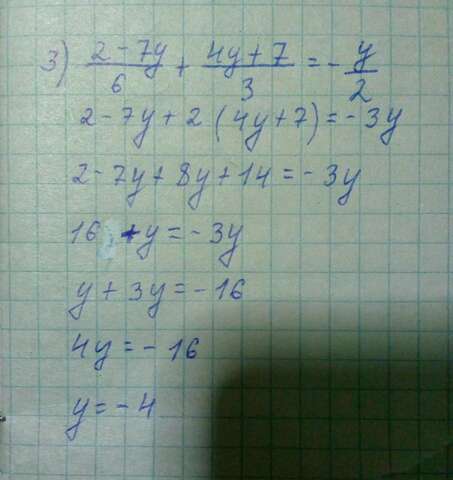 3) (2-7y)/6 + (4y+7)/3 = -y/2
2-7y+2(4y+7)=-3y
2-7y+8y+14=-3y
16+y=-3y
y+3y=-16
4y=-16
y=-4